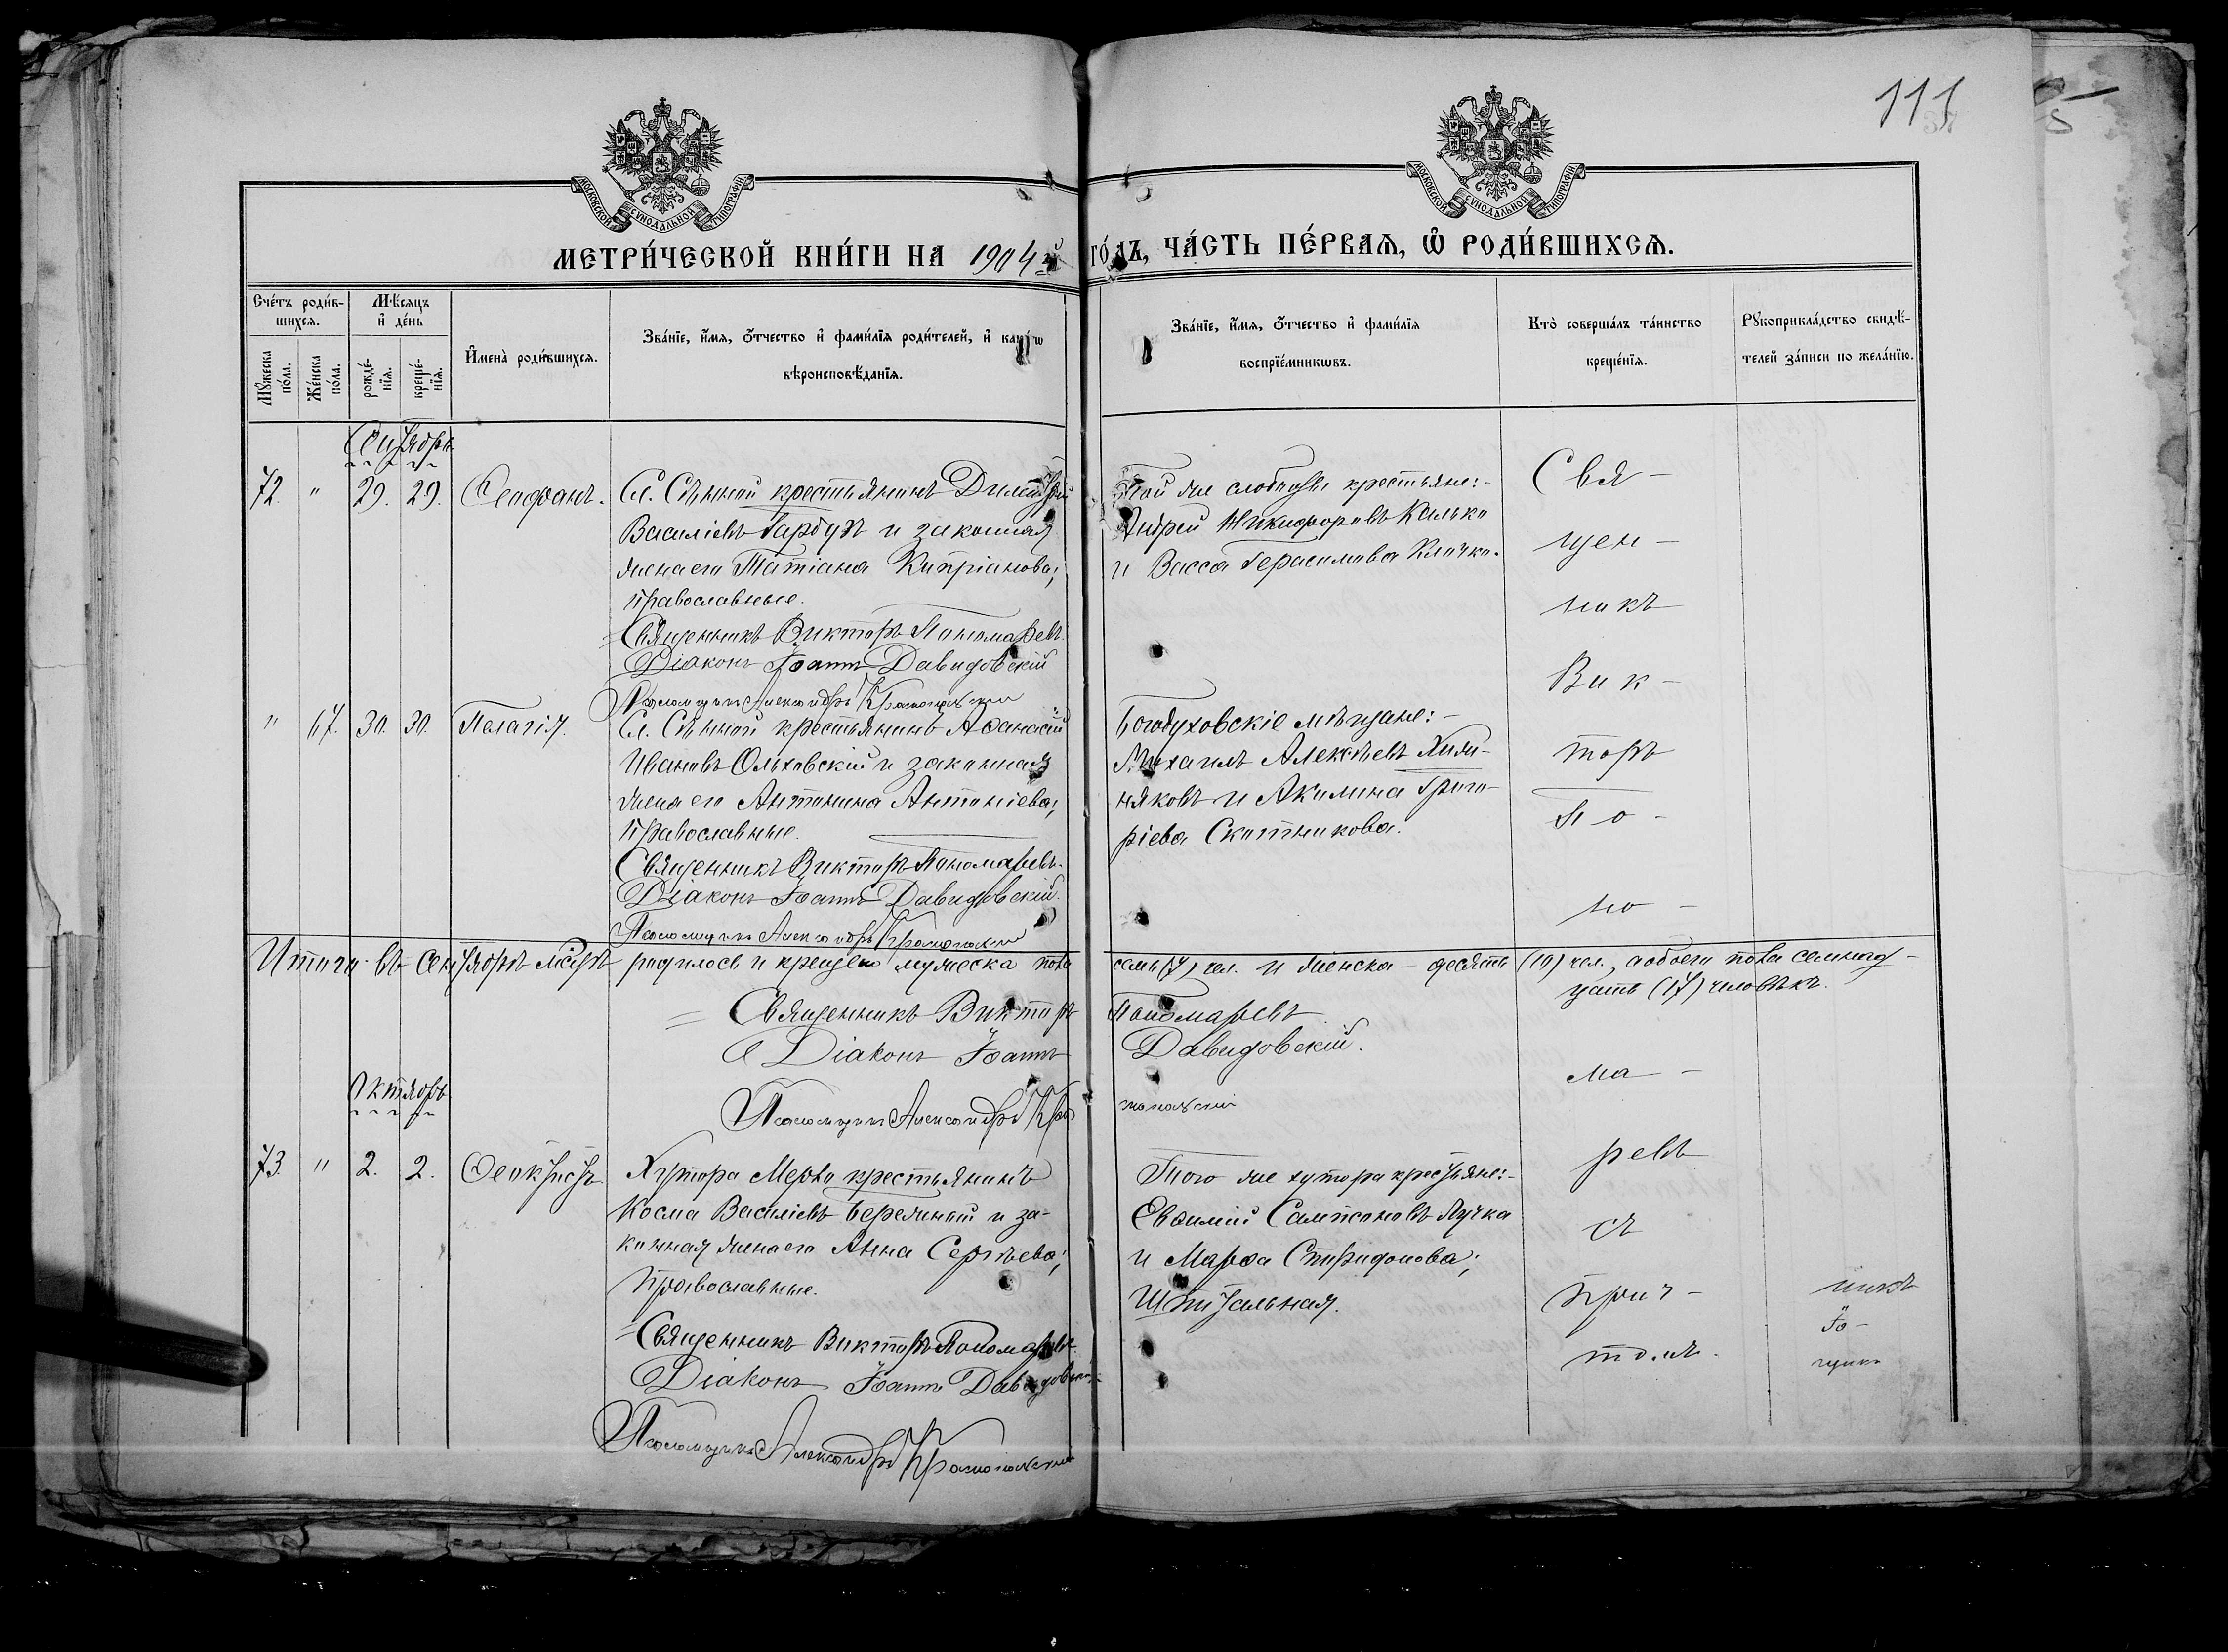 111
МОСКОВСКОЙ СѴНОДАЛЬНОЙ ТИПОГРАФІИ
МОСКОВСКОЙ СѴНОДАЛЬНОЙ ТИПОГРАФІИ
МЕТРИ́ЧЕСКОЙ КНИ́ГИ НА 1904й ГО́ДЪ, ЧА́СТЬ ПЕ́РВАѦ, Ѡ РОДИ́ВШИХСѦ.
Сче́тъ роди́в-
шихсѧ.
Мꙋ́жеска по́ла.
Же́нска по́ла.
Мѣ́сѧцъ и де́нь
рожде́-нїѧ.
креще́-нїѧ.
Имена̀ роди́вшихсѧ.
Зва́нїе, и́мѧ, о́тчество и фами́лїѧ роди́телей, и како́гѡ
вѣроисповѣ́данїѧ.
Зва́нїе, и́мѧ, о́тчество и фами́лїѧ
воспрїе́мникѡвъ.
Кто̀ соверша́лъ та́инство
креще́нїѧ.
Рꙋкоприкла́дство свидѣ́-
телей за́писи по жела́нїю.
Сентябрь
72. " 29. 29. Ѳеофанъ.
Сл. Сѣнной крестьянинъ Димитрій
Василіевъ Гарбузъ и законная
жена его Татіана Кипріанова;
православные.
Священникъ Викторъ Пономаревъ.
Діаконъ Іоаннъ Давидовскій
Псаломщикъ Александръ Краснопольскій
Той же слободы крестьяне:-
Андрей Никифоровъ Калько
и Васса Герасимова Клочко.
" 67. 30. 30. Пелагія.
Сл. Сѣнной крестьянинъ Аѳанасій
Ивановъ Ольховскій и законная
жена его Антонина Антоніева;
православные.
Священникъ Викторъ Пономаревъ.
Діаконъ Іоаннъ Давидовскій.
Псаломщикъ Александръ Краснопольскій
Богодуховскіе мѣщане:-
Михаилъ Алексѣевъ Хижи-
няковъ и Акилина Григо-
ріева Скотникова.
Итого въ Сентябрѣ мѣсяцѣ родилось и крещено мужеска пола семь (7) чел. и женска - десять (10) чел., а обоего пола семнад-
цать (17) человѣкъ.
Священникъ Викторъ Пономаревъ
Діаконъ Іоаннъ Давидовскій.
Псаломщикъ Александръ Краснопольскій
Октябрь
73. " 2. 2. Ѳеоктистъ
Хутора Мерло крестьянинъ
Косма Василіевъ Бережный и за-
конная жена его Анна Сергѣева;
православные.
Священникъ Викторъ Пономаревъ
Діаконъ Іоаннъ Давидовскій
Псаломщикъ Александръ Краснопольскій
Того же хутора крестьяне:-
Евѳимій Сампсоновъ Лучка
и Марѳа Спиридонова;
Шпитальная.
Свя-
щен-
никъ
Вик-
торъ
По-
но-
ма-
ревъ
съ
прич-
томъ.
никъ
Іо-
щикъ